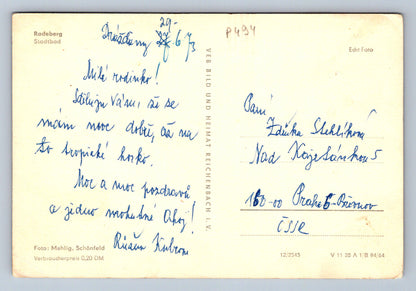 Radeberg
Stadtbad
29.
Drážďany 6 73
P494
Milá rodinko!
Sděluji Vám, že se
mám moc dobře, až na
to tropické horko.
Moc a moc pozdravů
a jedno mohutné Ahoj!
Foto: Mehlig, Schönfeld
Verbraucherpreis 0,20 DM
VEB BILD UND HEIMAT REICHENBACH i. V.
Echt Foto
Paní
Zdeňka Stehlíková
Nad Kajetánkou 5
160-00 Praha 6-Břevnov
ČSSR
12/3545
V 11 28 A 1 B 64/64